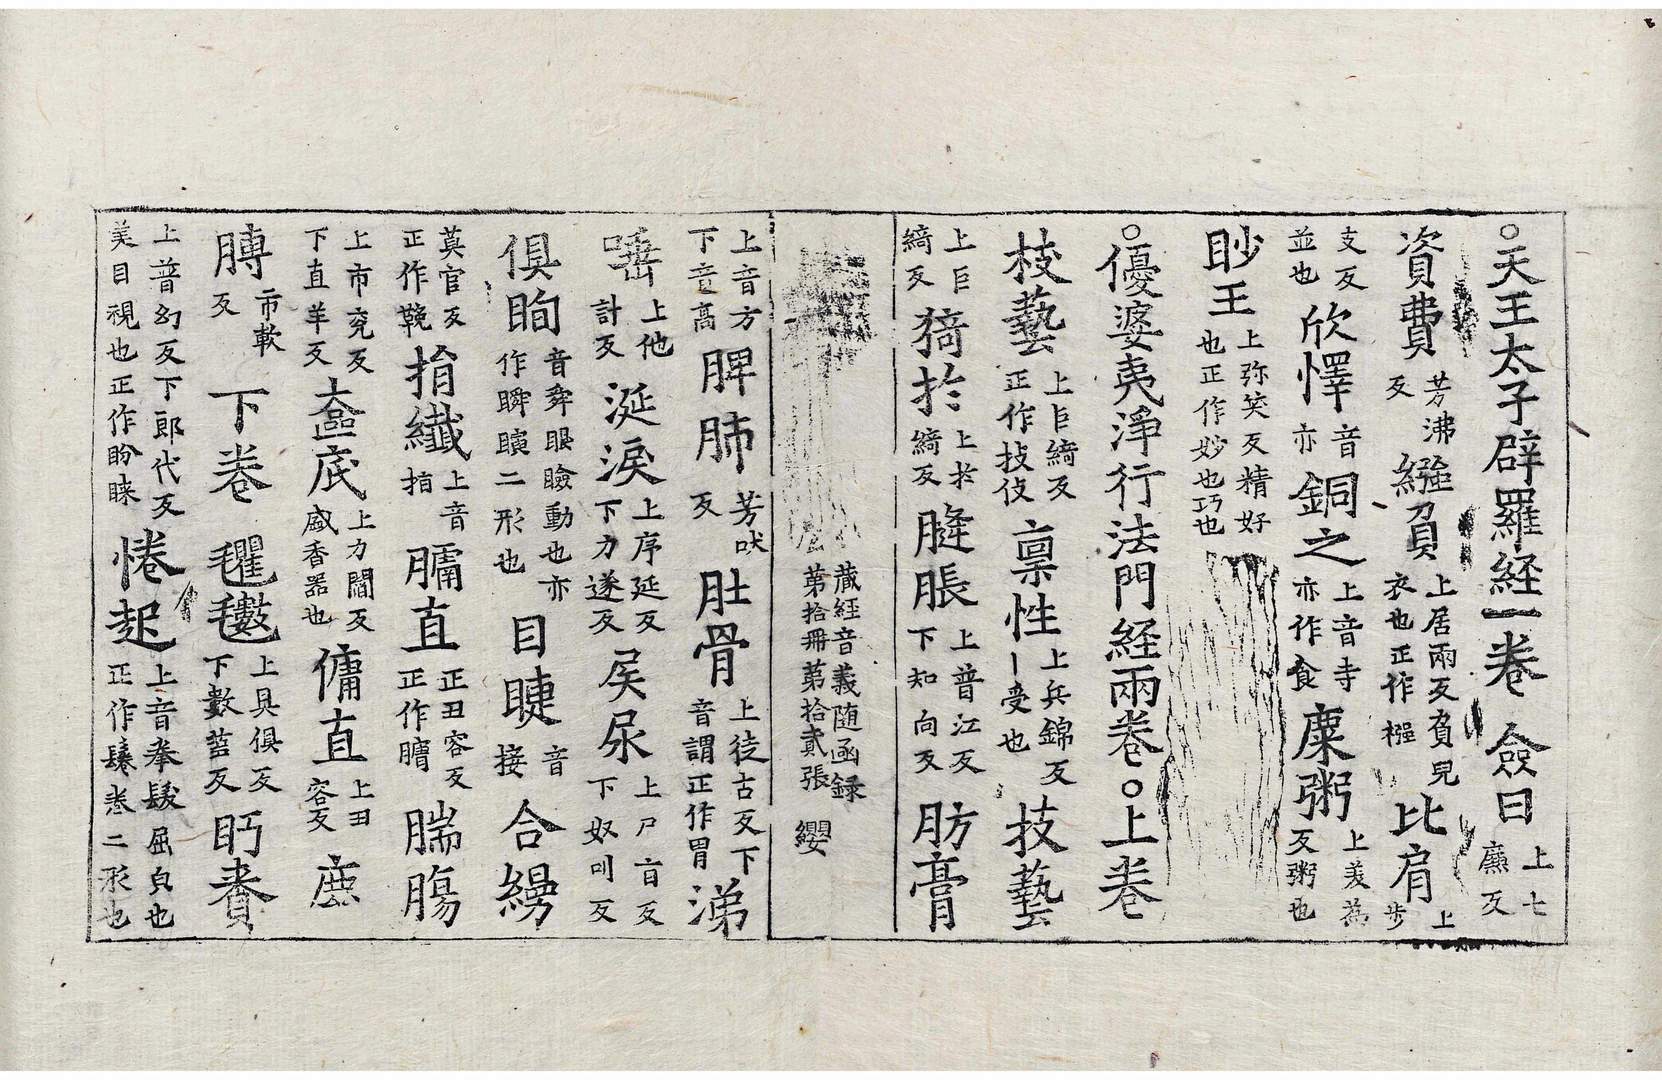 ○天王太子辟羅経一卷　僉曰上七廉反
資費芳沸反繦負上居兩反負皃衣也正作襁比肩上步
支反並也欣懌音亦銅之上音寺亦作食糜粥上美為反粥也
眇王上弥笑反精好也正作妙也巧也
○優婆夷淨行法門経兩卷○上卷
枝藝上巨綺反正作技伎禀性上兵錦反丨受也技藝
上巨綺反猗扵上扵綺反胮脹上普江反下知向反肪膏
藏経音義随函録
第拾冊第拾貳張　纓
上音方下音髙脾肺芳吠反肚骨上徒古反下音謂正作胃涕
唾上他計反涎淚上序延反下力遂反㞑尿上尸旨反下奴叫反
俱眴音舜眼瞼動也亦作瞬瞚二形也目睫音接合縵
莫官反正作鞔揹纖上音指腨直正丑容反正作𦟛腨膓
上市兖反下直羊反奩底上力閻反盛香器也傭直上丑容反鹿
膞市軟反下卷　氍𣰽上具俱反下數蒭反眄賚
上普幻反下郎代反美目視也正作盼睞惓起上音拳髮屈皃也正作鬈卷二形也